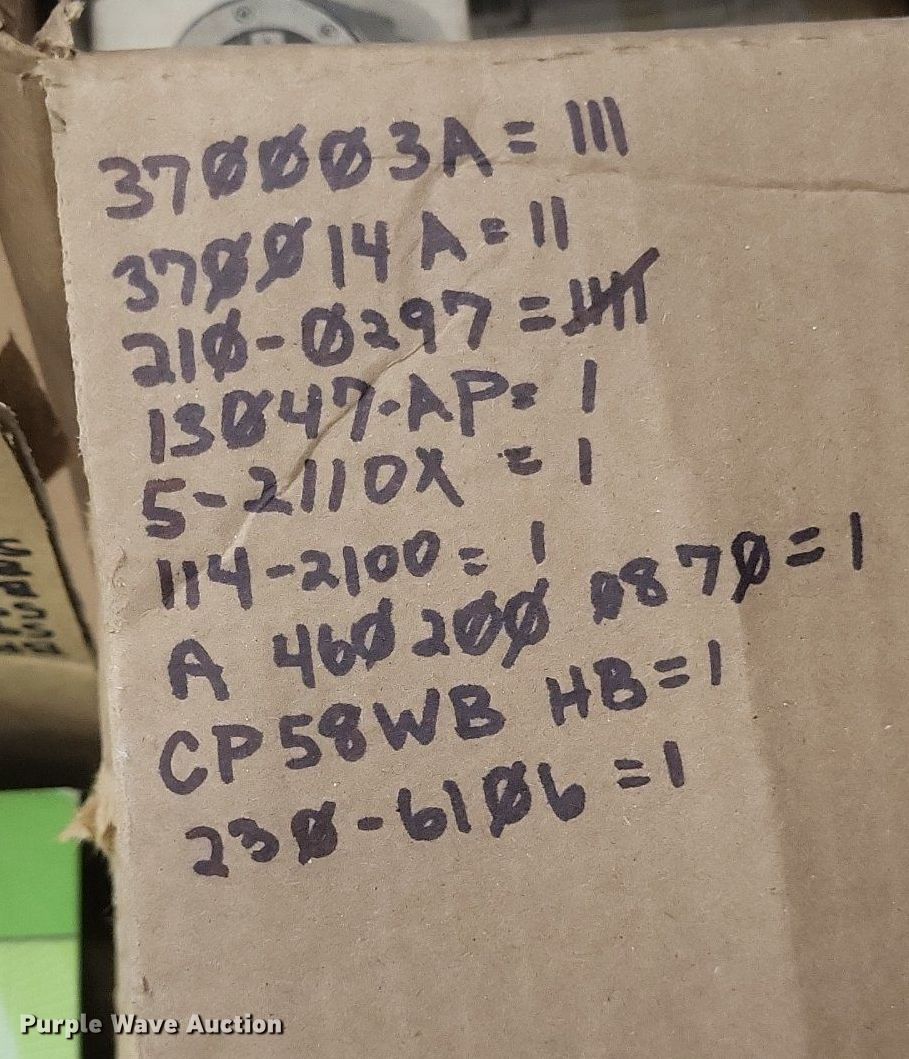 37ØØØ3A = III
37ØØ14A = II
21Ø-Ø297 = IIII
13Ø47-AP = 1
5-2110X = 1
114-2100 = 1
A 46Ø2ØØ Ø87Ø = 1
CP58WB HB = 1
23Ø-61Ø6 = 1
Purple Wave Auction